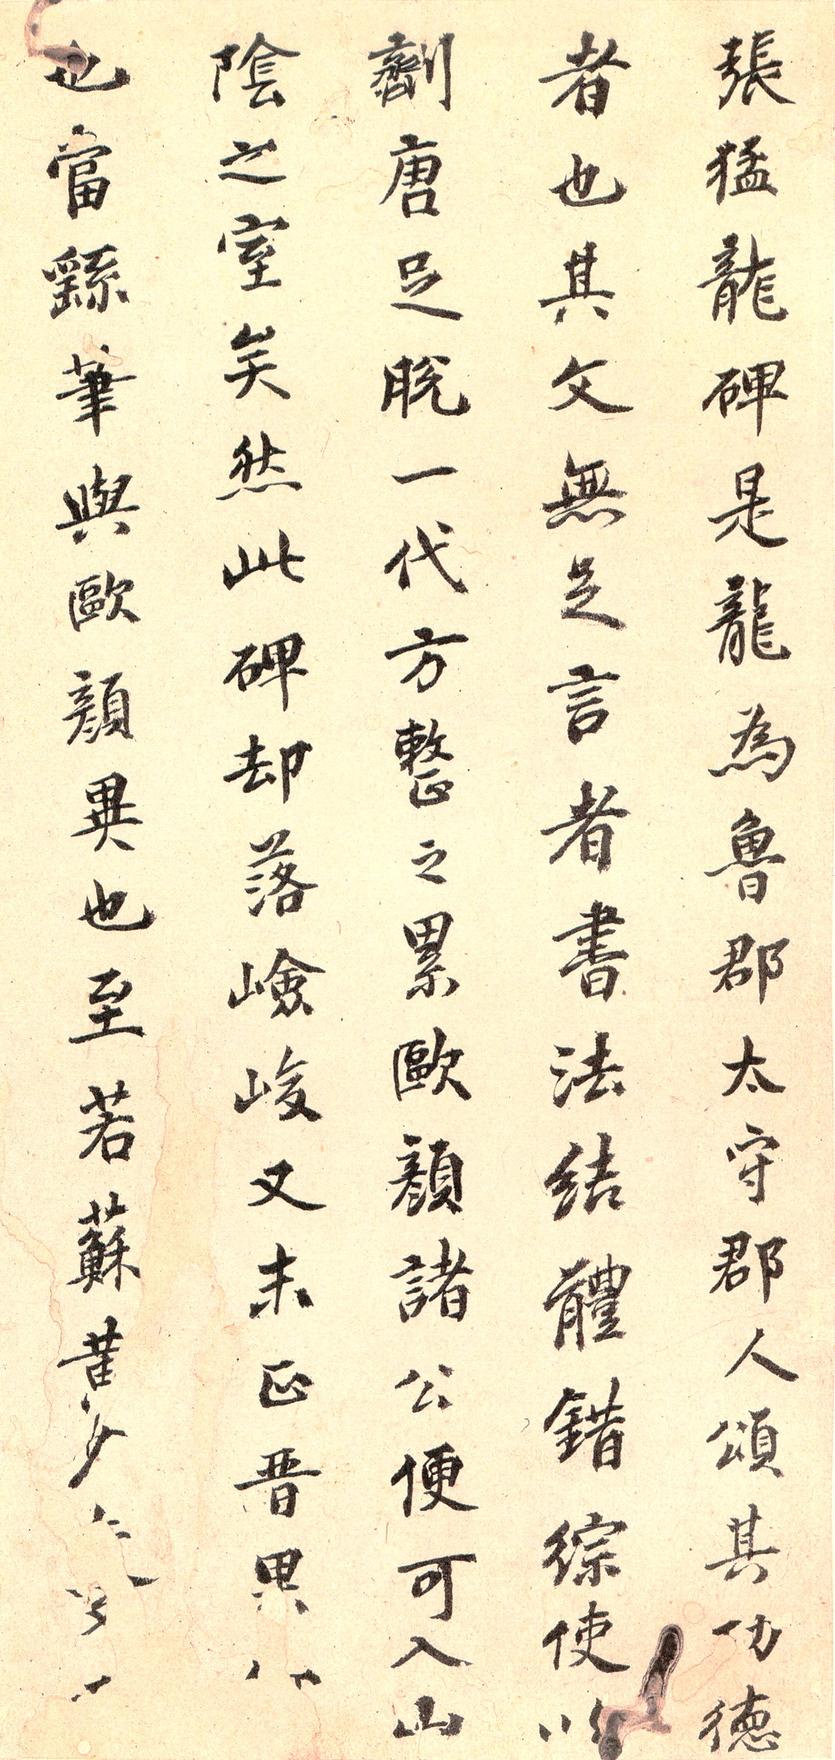 張猛龍碑是龍為魯郡太守郡人頌其功德
者也其文無足言者書法結體錯綜使
劑唐足脫一代方整之累歐顏諸公便可入山
陰之室矣然此碑却落嶮峻又未正晋異
也當繇筆與歐顏異也至若蘇黄